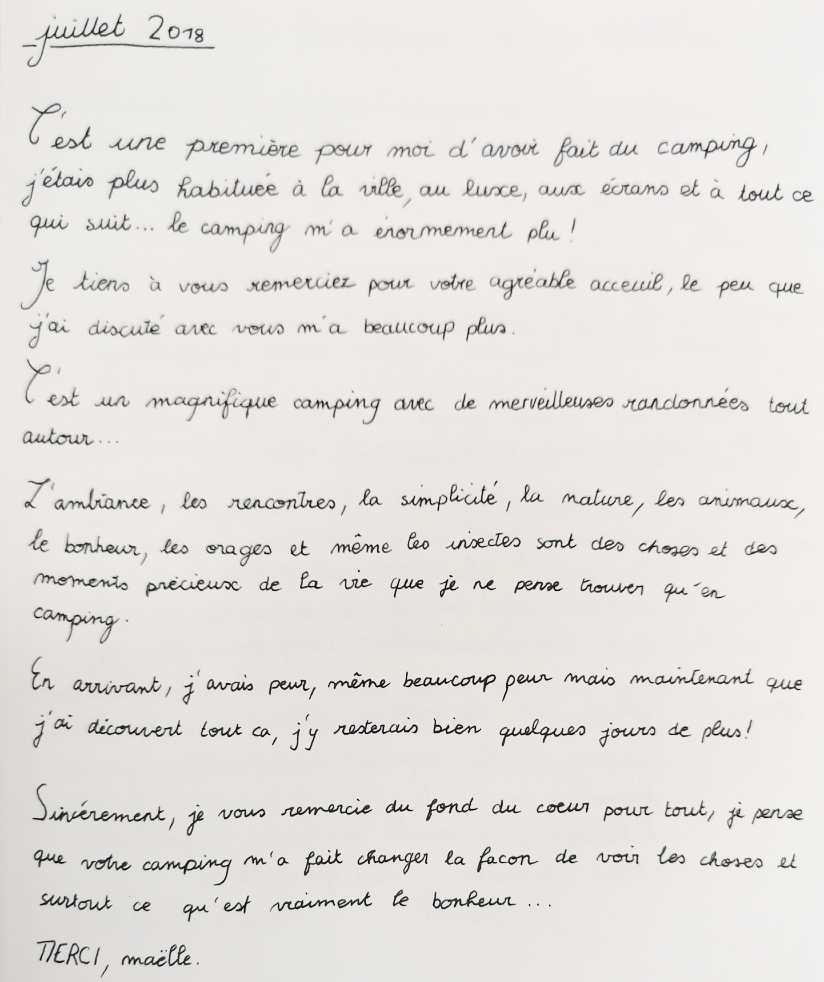 juillet 2018
C'est une première pour moi d'avoir fait du camping,
j'étais plus habituée à la ville, au luxe, aux écrans et à tout ce
qui suit... le camping m'a énormement plu !
Je tiens à vous remerciez pour votre agréable acceuil, le peu que
j'ai discuté avec vous m'a beaucoup plus.
C'est un magnifique camping avec de merveilleuses randonnées tout
autour...
L'ambiance, les rencontres, la simplicité, la nature, les animaux,
le bonheur, les orages et même les insectes sont des choses et des
moments précieux de la vie que je ne pense trouver qu'en
camping.
En arrivant, j'avais peur, même beaucoup peur mais maintenant que
j'ai découvert tout ca, j'y resterais bien quelques jours de plus!
Sincérement, je vous remercie du fond du coeur pour tout, je pense
que votre camping m'a fait changer la facon de voir les choses et
surtout ce qu'est vraiment le bonheur ...
MERCI, maëlle.